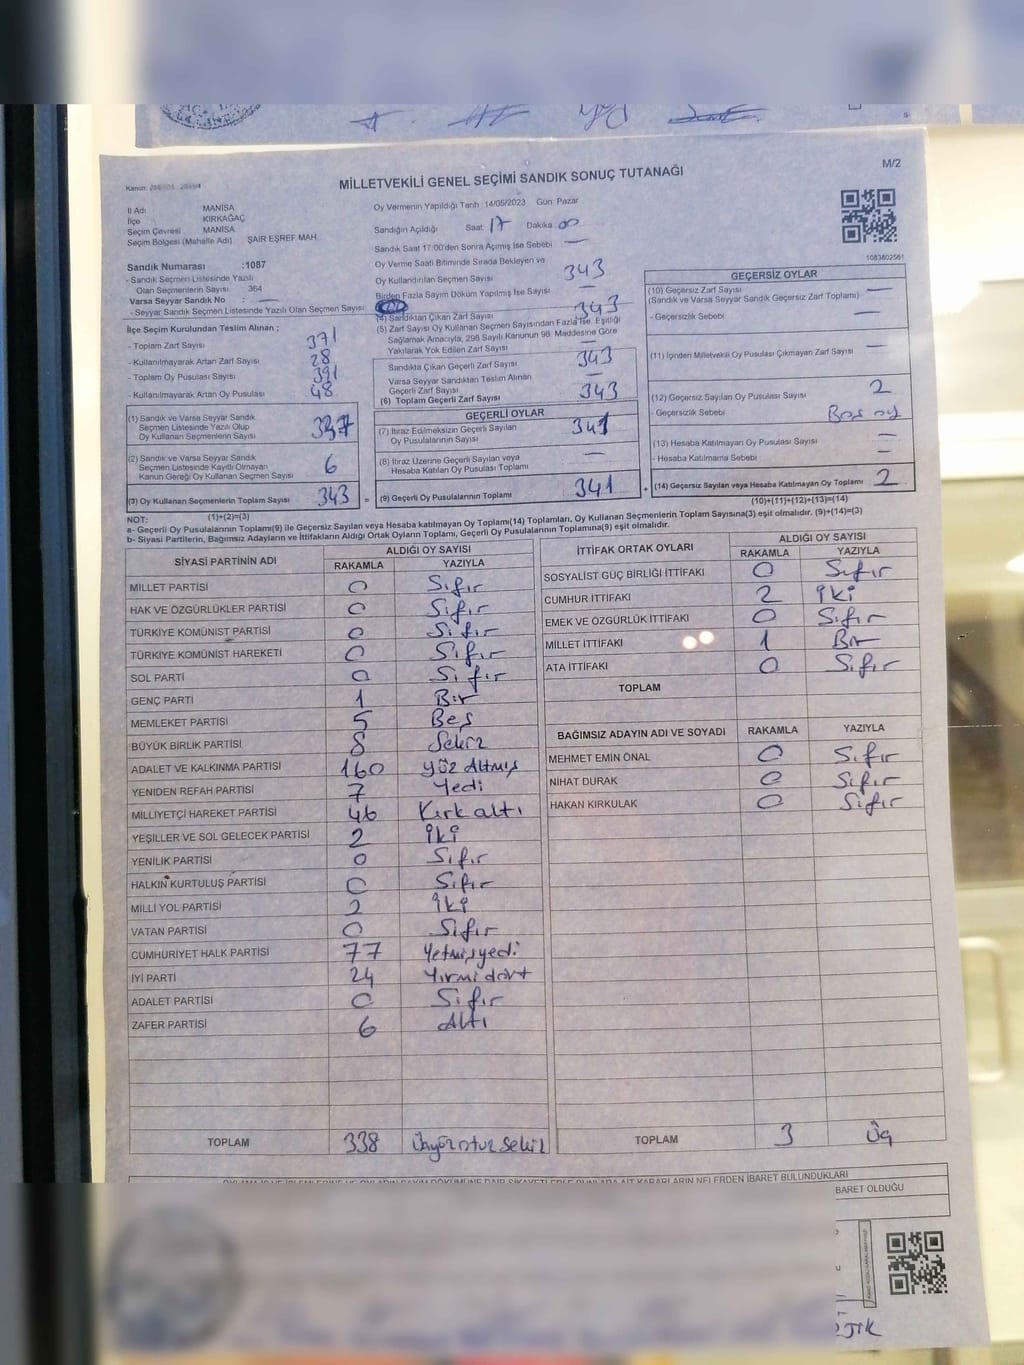 M/2
MİLLETVEKİLİ GENEL SEÇİMİ SANDIK SONUÇ TUTANAĞI
Kanun:
İl Adı MANİSA
İlçe KIRKAĞAÇ
Seçim Çevresi MANİSA
Seçim Bölgesi (Mahalle Adı) ŞAİR EŞREF MAH
Sandık Numarası :1087
- Sandık Seçmen Listesinde Yazılı
Olan Seçmenlerin Sayısı 364
Varsa Seyyar Sandık No : —
- Seyyar Sandık Seçmen Listesinde Yazılı Olan Seçmen Sayısı
İlçe Seçim Kurulundan Teslim Alınan ;
- Toplam Zarf Sayısı 371
- Kullanılmayarak Artan Zarf Sayısı 28
- Toplam Oy Pusulası Sayısı 391
- Kullanılmayarak Artan Oy Pusulası 48
(1) Sandık ve Varsa Seyyar Sandık
Seçmen Listesinde Yazılı Olup
Oy Kullanan Seçmenlerin Sayısı 337
(2) Sandık ve Varsa Seyyar Sandık
Seçmen Listesinde Kayıtlı Olmayan
Kanun Gereği Oy Kullanan Seçmen Sayısı 6
(3) Oy Kullanan Seçmenlerin Toplam Sayısı 343 =
(1)+(2)=(3)
Oy Vermenin Yapıldığı Tarih 14/05/2023 Gün Pazar
Sandığın Açıldığı Saat 17 Dakika 00
Sandık Saat 17:00'den Sonra Açımış İse Sebebi —
Oy Verme Saati Bitiminde Sırada Bekleyen ve
Oy Kullandırılan Seçmen Sayısı 343
Birden Fazla Sayım Döküm Yapılmış İse Sayısı —
(4) Sandıktan Çıkan Zarf Sayısı 343
(5) Zarf Sayısı Oy Kullanan Seçmen Sayısından Fazla İse, Eşitliği
Sağlamak Amacıyla, 298 Sayılı Kanunun 98. Maddesine Göre
Yakılarak Yok Edilen Zarf Sayısı —
Sandıkta Çıkan Geçerli Zarf Sayısı 343
Varsa Seyyar Sandıktan Teslim Alınan
Geçerli Zarf Sayısı —
(6) Toplam Geçerli Zarf Sayısı 343
GEÇERLİ OYLAR
(7) İtiraz Edilmeksizin Geçerli Sayılan
Oy Pusulalarının Sayısı 341
(8) İtiraz Üzerine Geçerli Sayılan veya
Hesaba Katılan Oy Pusulası Toplamı —
(9) Geçerli Oy Pusulalarının Toplamı 341 +
1083802561
GEÇERSİZ OYLAR
(10) Geçersiz Zarf Sayısı —
(Sandık ve Varsa Seyyar Sandık Geçersiz Zarf Toplamı)
- Geçersizlik Sebebi —
(11) İçinden Milletvekili Oy Pusulası Çıkmayan Zarf Sayısı —
(12) Geçersiz Sayılan Oy Pusulası Sayısı 2
- Geçersizlik Sebebi Boş oy
(13) Hesaba Katılmayan Oy Pusulası Sayısı —
- Hesaba Katılmama Sebebi —
(14) Geçersiz Sayılan veya Hesaba Katılmayan Oy Toplamı 2
(10)+(11)+(12)+(13)=(14)
NOT:
a- Geçerli Oy Pusulalarının Toplamı(9) ile Geçersiz Sayılan veya Hesaba katılmayan Oy Toplamı(14) Toplamları, Oy Kullanan Seçmenlerin Toplam Sayısına(3) eşit olmalıdır. (9)+(14)=(3)
b- Siyasi Partilerin, Bağımsız Adayların ve İttifakların Aldığı Ortak Oyların Toplamı, Geçerli Oy Pusulalarının Toplamına(9) eşit olmalıdır.
SİYASİ PARTİNİN ADI ALDIĞI OY SAYISI
RAKAMLA YAZIYLA
MİLLET PARTİSİ 0 Sıfır
HAK VE ÖZGÜRLÜKLER PARTİSİ 0 Sıfır
TÜRKİYE KOMÜNİST PARTİSİ 0 Sıfır
TÜRKİYE KOMÜNİST HAREKETİ 0 Sıfır
SOL PARTİ 0 Sıfır
GENÇ PARTİ 1 Bir
MEMLEKET PARTİSİ 5 Beş
BÜYÜK BİRLİK PARTİSİ 8 Sekiz
ADALET VE KALKINMA PARTİSİ 160 Yüz Altmış
YENİDEN REFAH PARTİSİ 7 Yedi
MİLLİYETÇİ HAREKET PARTİSİ 46 Kırk altı
YEŞİLLER VE SOL GELECEK PARTİSİ 2 İki
YENİLİK PARTİSİ 0 Sıfır
HALKIN KURTULUŞ PARTİSİ 0 Sıfır
MİLLİ YOL PARTİSİ 2 İki
VATAN PARTİSİ 0 Sıfır
CUMHURİYET HALK PARTİSİ 77 Yetmişyedi
İYİ PARTİ 24 Yırmi dört
ADALET PARTİSİ 0 Sıfır
ZAFER PARTİSİ 6 Altı
TOPLAM 338 Üçyüzotuz sekiz
İTTİFAK ORTAK OYLARI ALDIĞI OY SAYISI
RAKAMLA YAZIYLA
SOSYALİST GÜÇ BİRLİĞİ İTTİFAKI 0 Sıfır
CUMHUR İTTİFAKI 2 İki
EMEK VE ÖZGÜRLÜK İTTİFAKI 0 Sıfır
MİLLET İTTİFAKI 1 Bir
ATA İTTİFAKI 0 Sıfır
TOPLAM
BAĞIMSIZ ADAYIN ADI VE SOYADI RAKAMLA YAZIYLA
MEHMET EMİN ÖNAL 0 Sıfır
NİHAT DURAK 0 Sıfır
HAKAN KIRKULAK 0 Sıfır
TOPLAM 3 Üç
BARET OLDUĞU